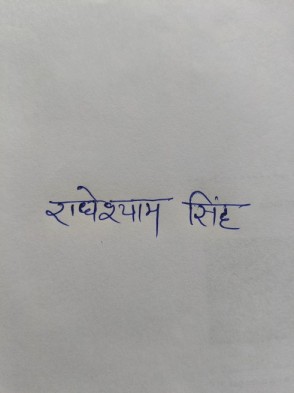 राधेश्याम सिंह